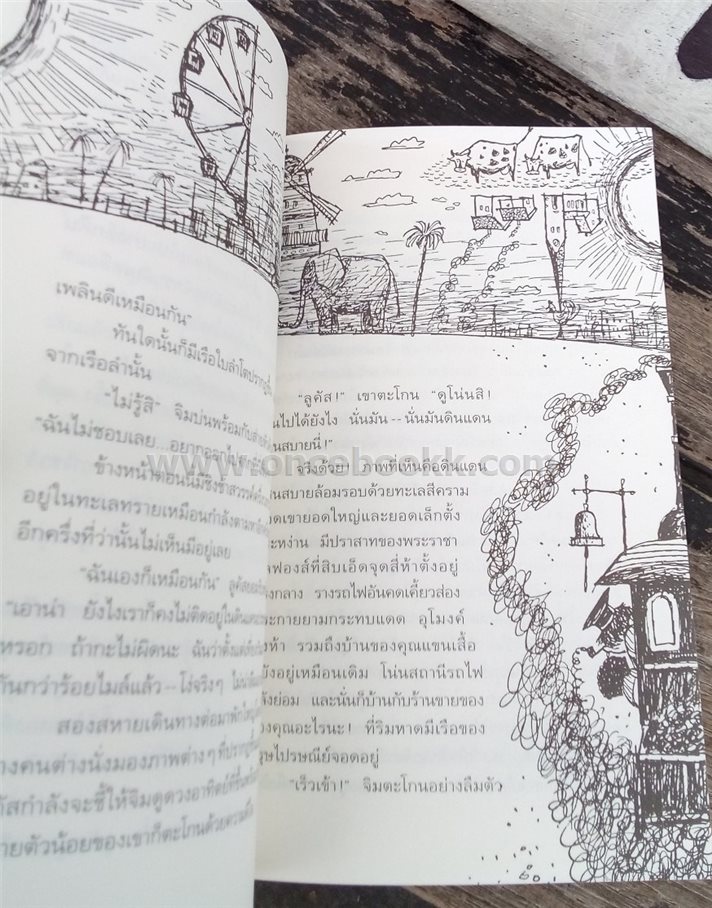 เพลินดีเหมือนกัน"
ทันใดนั้นก็มีเรือใบลำโตปรากฏขึ้น
จากเรือลำนั้น
"ไม่รู้สิ" จิมบ่นพร้อมกับ
"ฉันไม่ชอบเลย...อยากออกไป
ข้างหน้าตอนนี้มีชิงช้าสวรรค์
อยู่ในทะเลทรายเหมือนกำลังตาม
อีกครึ่งที่ว่านั้นไม่เห็นมีอยู่เลย
"ฉันเองก็เหมือนกัน" ลูคัส
"เอาน่า ยังไงเราก็คงไม่ติดอยู่ใน
หรอก ถ้ากะไม่ผิดนะ ฉันว่าตั้งแต่
กันกว่าร้อยไมล์แล้ว -- โง่จริงๆ
สองสหายเดินทางต่อมา
างคนต่างนั่งมองภาพต่างๆ ที่ปรากฏขึ้น
ัสกำลังจะชี้ให้จิมดูดวงอาทิตย์
ายตัวน้อยของเขาก็ตะโกนด้วยความ
"ลูคัส!" เขาตะโกน "ดูโน่นสิ!
นไปได้ยังไง นั่นมัน -- นั่นมันดินแดน
นสบายนี่!"
จริงด้วย! ภาพที่เห็นคือดินแดน
นสบายล้อมรอบด้วยทะเลสีคราม
อดเขายอดใหญ่และยอดเล็กตั้ง
ะหง่าน มีปราสาทของพระราชา
ลฟองส์ที่สิบเอ็ดจุดสี่ห้าตั้งอยู่
งกลาง รางรถไฟอันคดเคี้ยวส่อง
ะกายยามกระทบแดด อุโมงค์
ห้า รวมถึงบ้านของคุณแขนเสื้อ
ังอยู่เหมือนเดิม โน่นสถานีรถไฟ
ังย่อม และนั่นก็บ้านกับร้านขายของ
องคุณอะไรนะ! ที่ริมหาดมีเรือของ
ุษไปรษณีย์จอดอยู่
"เร็วเข้า!" จิมตะโกนอย่างลืมตัว
www.oncebookk.com